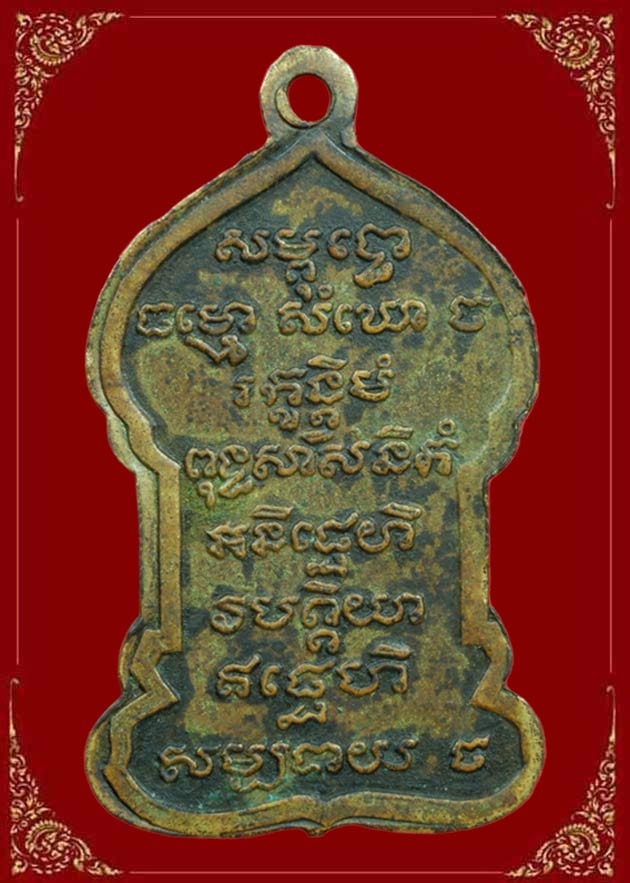 សម្ពុទ្ធោ
ធម្មោ សំឃោ ច
រក្ខន្តិមំ
ពុទ្ធសាសនិកំ
អនិដ្ឋេហិ
វបត្តិយា
ឥដ្ឋេហិ
សម្បទាយ ច